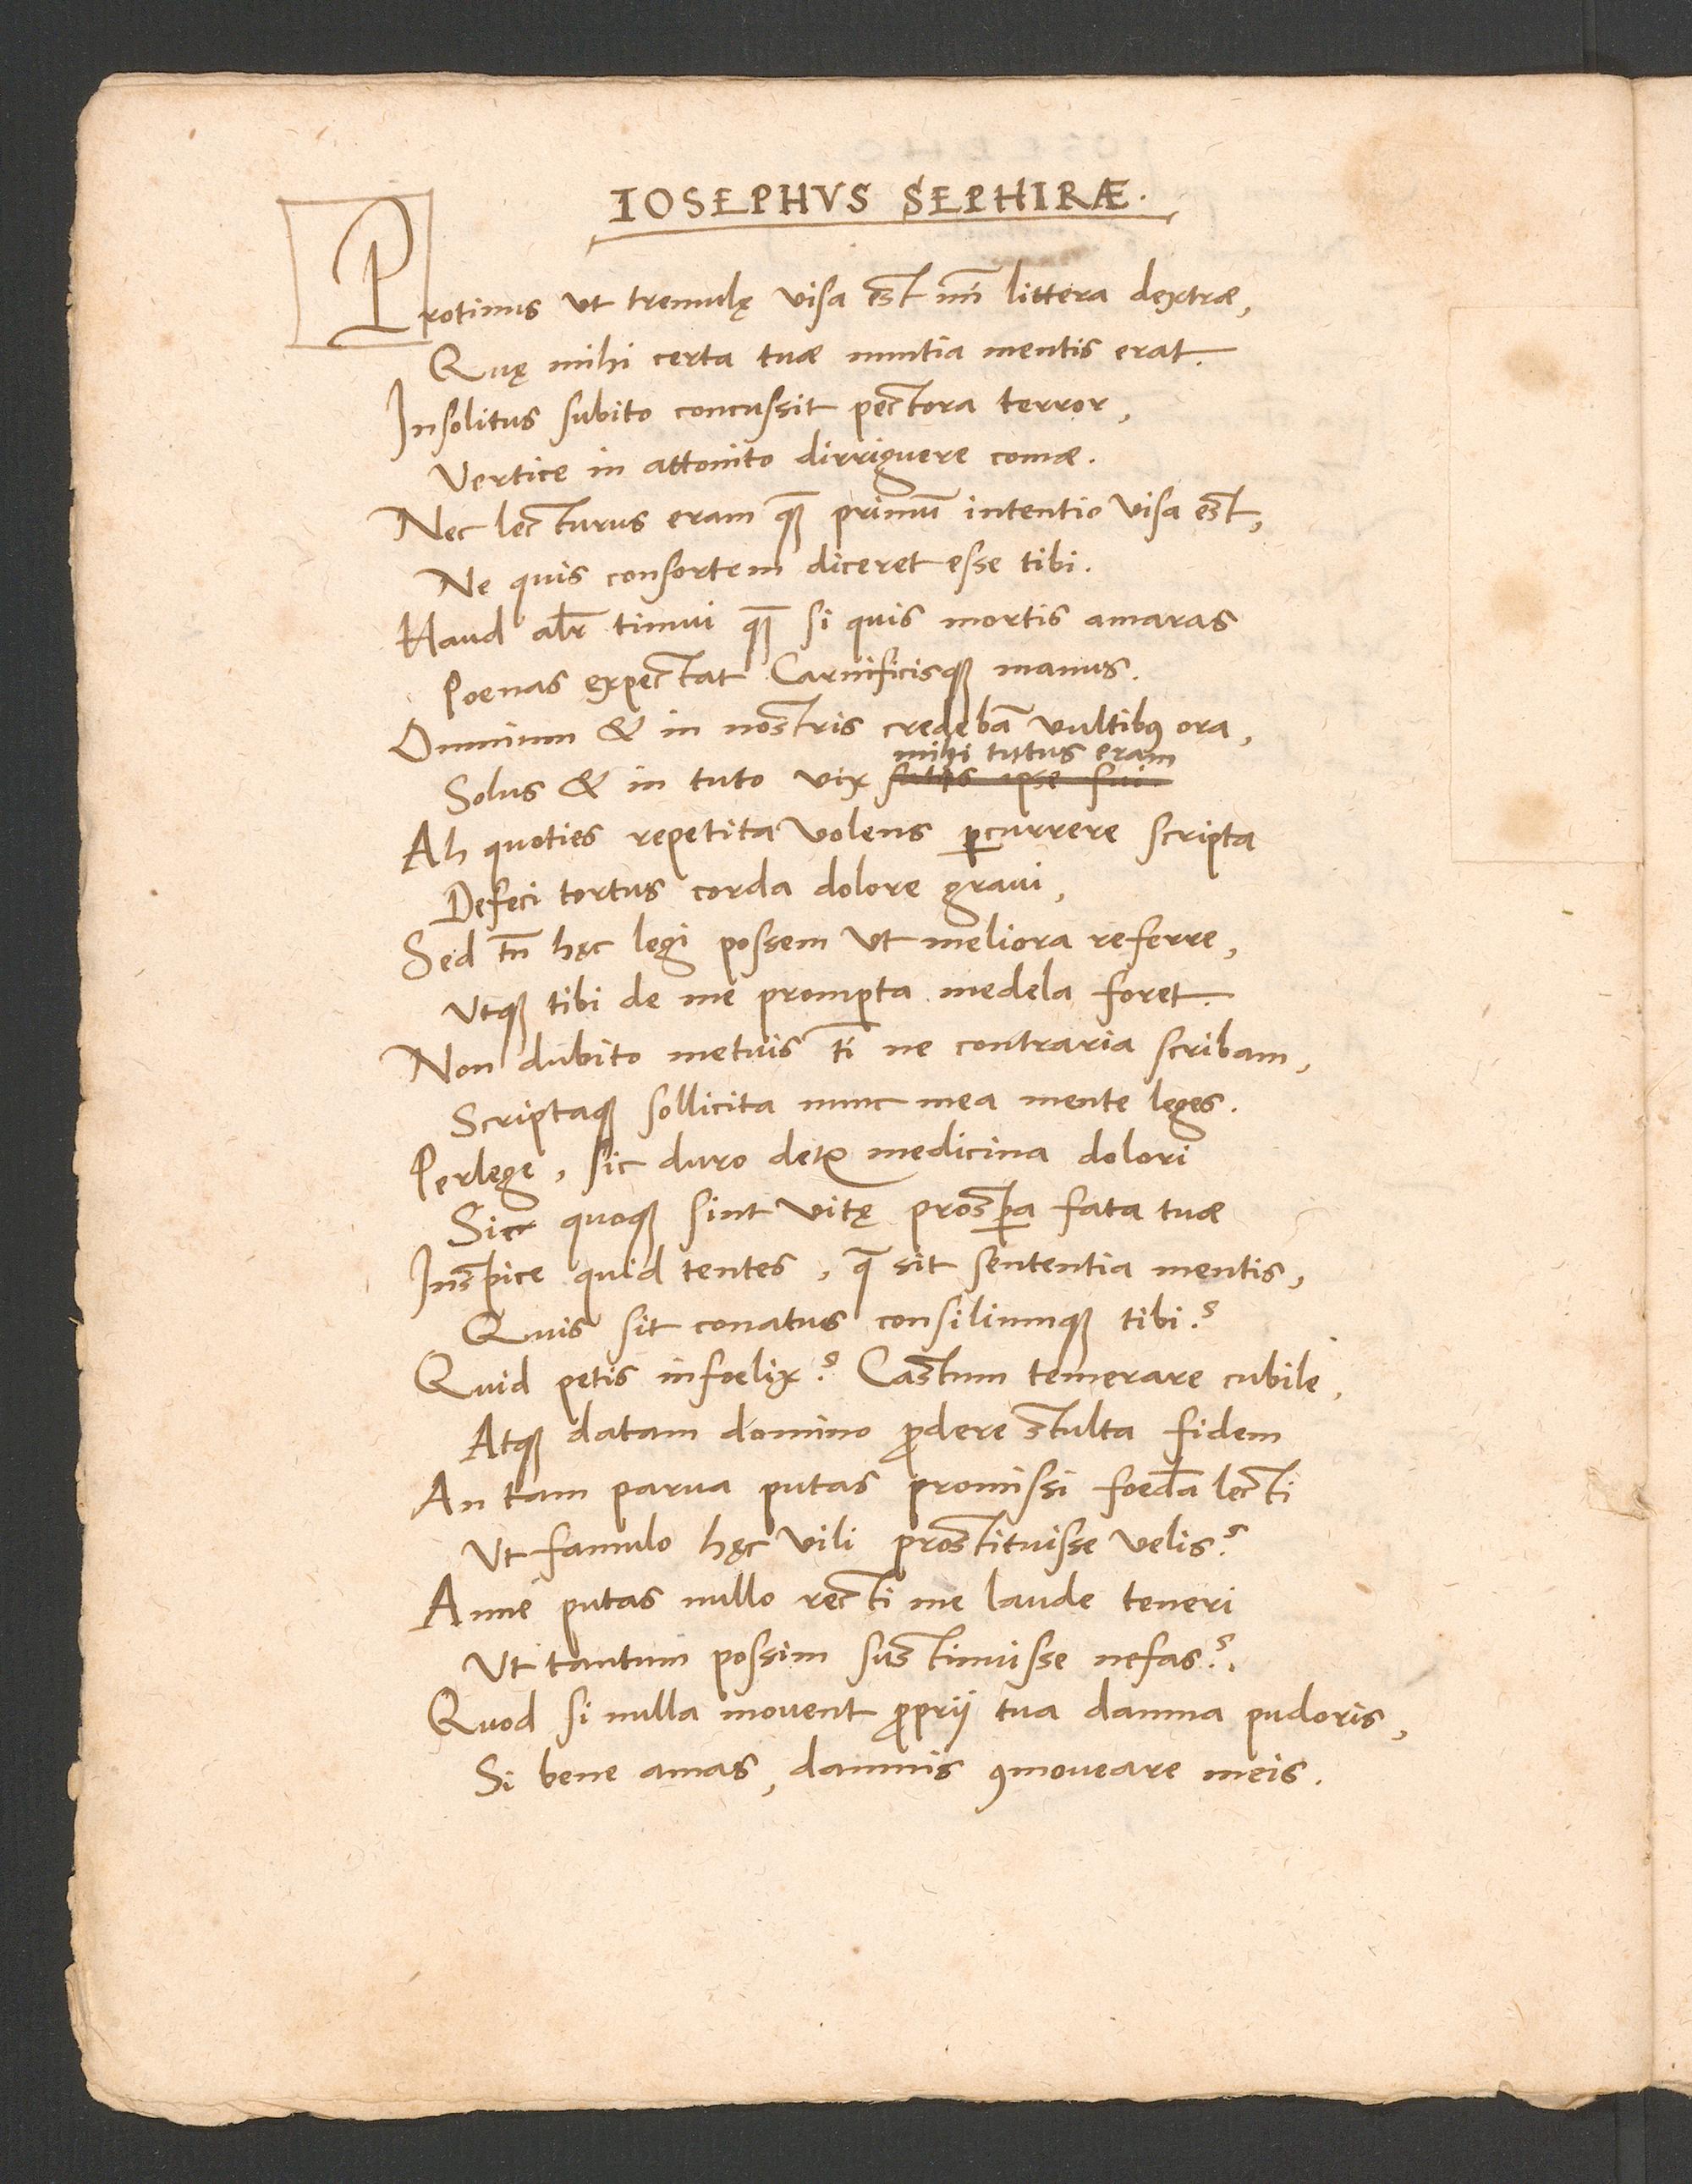 IOSEPHVS SEPHIRÆ.
Protinus ut tremulę visa est mī littera dextræ,
Quę mihi certa tuæ nuntia mentis erat.
Insolitus subito concussit pectora terror,
Vertice in attonito dirriguere comæ.
Nec lecturus eram quā primū intentio visa est,
Ne quis consortem diceret esse tibi.
Haud alr̄ timui quā si quis mortis amaras
Poenas expectat Carnificisqꝫ manus.
Omnium & in nostris credebā vultibꝰ ora,
mihi tutus eram
Solus & in tuto vix ipse fui
Ah quoties repetita volens ꝑcurrere scripta
Defeci tortus corda dolore graui,
Sed tn̄ hęc legi possem ut meliora referre,
Utqꝫ tibi de me prompta medela foret.
Non dubito metuis tī ne contraria scribam,
Scriptaqꝫ sollicita nunc mea mente leges.
Perlege, sic duro detꝛ medicina dolori
Sic quoqꝫ sint vitę prosꝑa fata tuæ
Inspice quid tentes, q̄ sit sententia mentis,
Quis sit conatus consiliumqꝫ tibi?
Quid petis infoelix? Castum temerare cubile,
Atqꝫ datam domino ꝓdere stulta fidem
An tam parua putas promissi foed̄a lecti
Ut famulo hęc vili prostituisse velis?
Anne putas nullo recti me laude teneri
Ut tantum possim sustinuisse nefas?
Quod si nulla mouent ꝓprij tua damna pudoris,
Si bene amas, damnis ꝯmoveare meis.